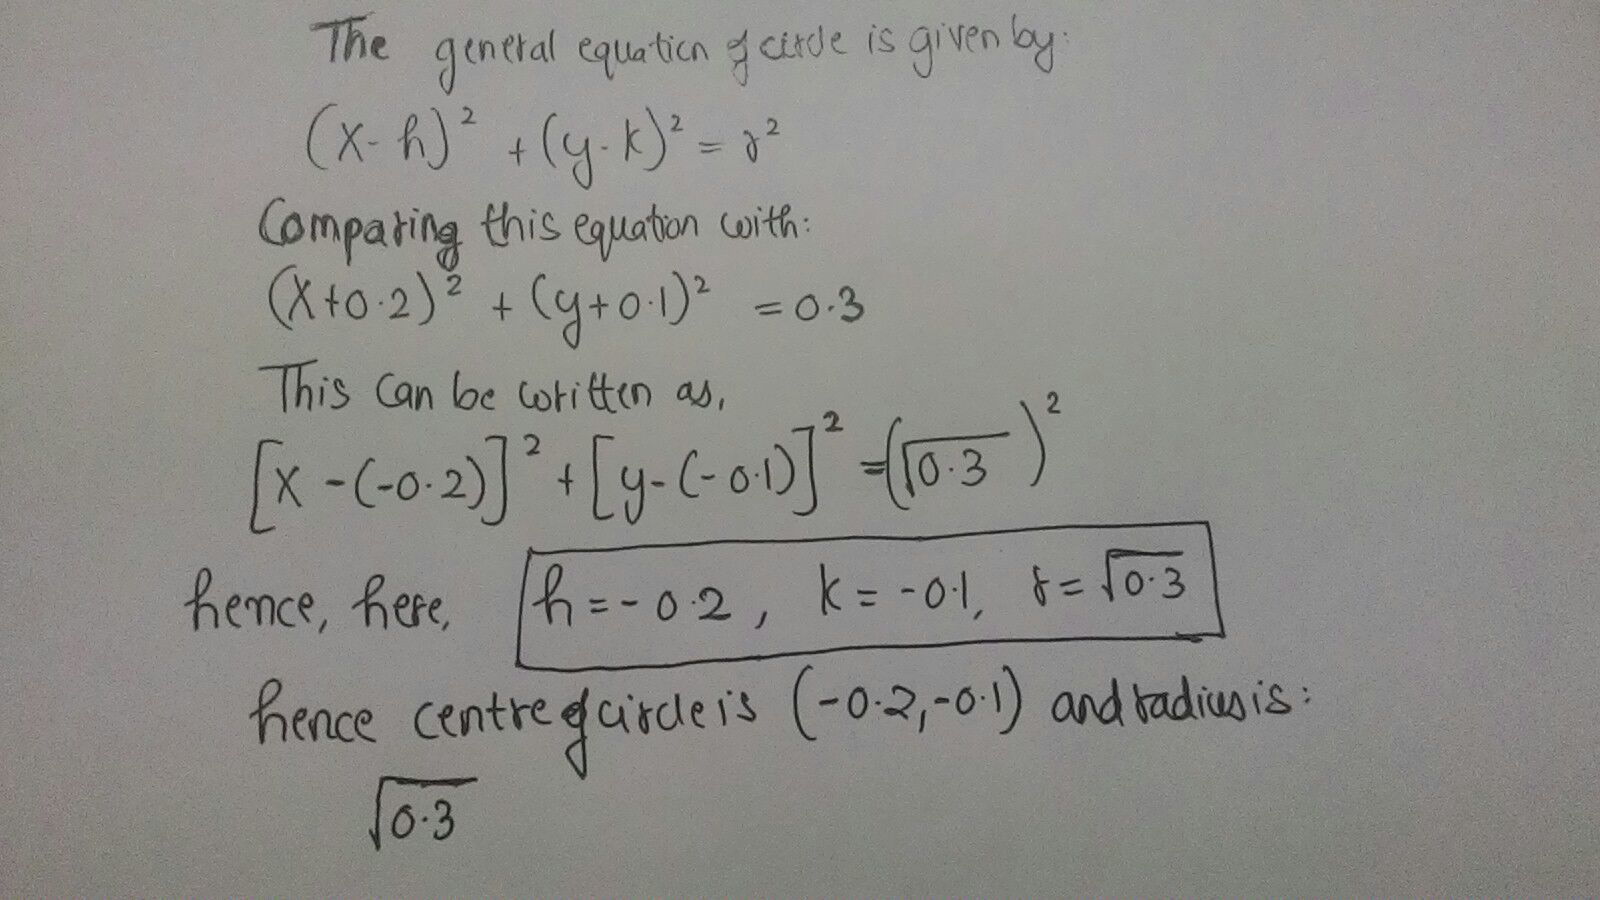 The general equation of circle is given by:
(x-h)² + (y-k)² = r²
Comparing this equation with:
(x+0.2)² + (y+0.1)² = 0.3
This can be written as,
[x-(-0.2)]² + [y-(-0.1)]² = (√0.3)²
hence, here, h = -0.2, k = -0.1, r = √0.3
hence centre of circle is (-0.2,-0.1) and radius is:
√0.3